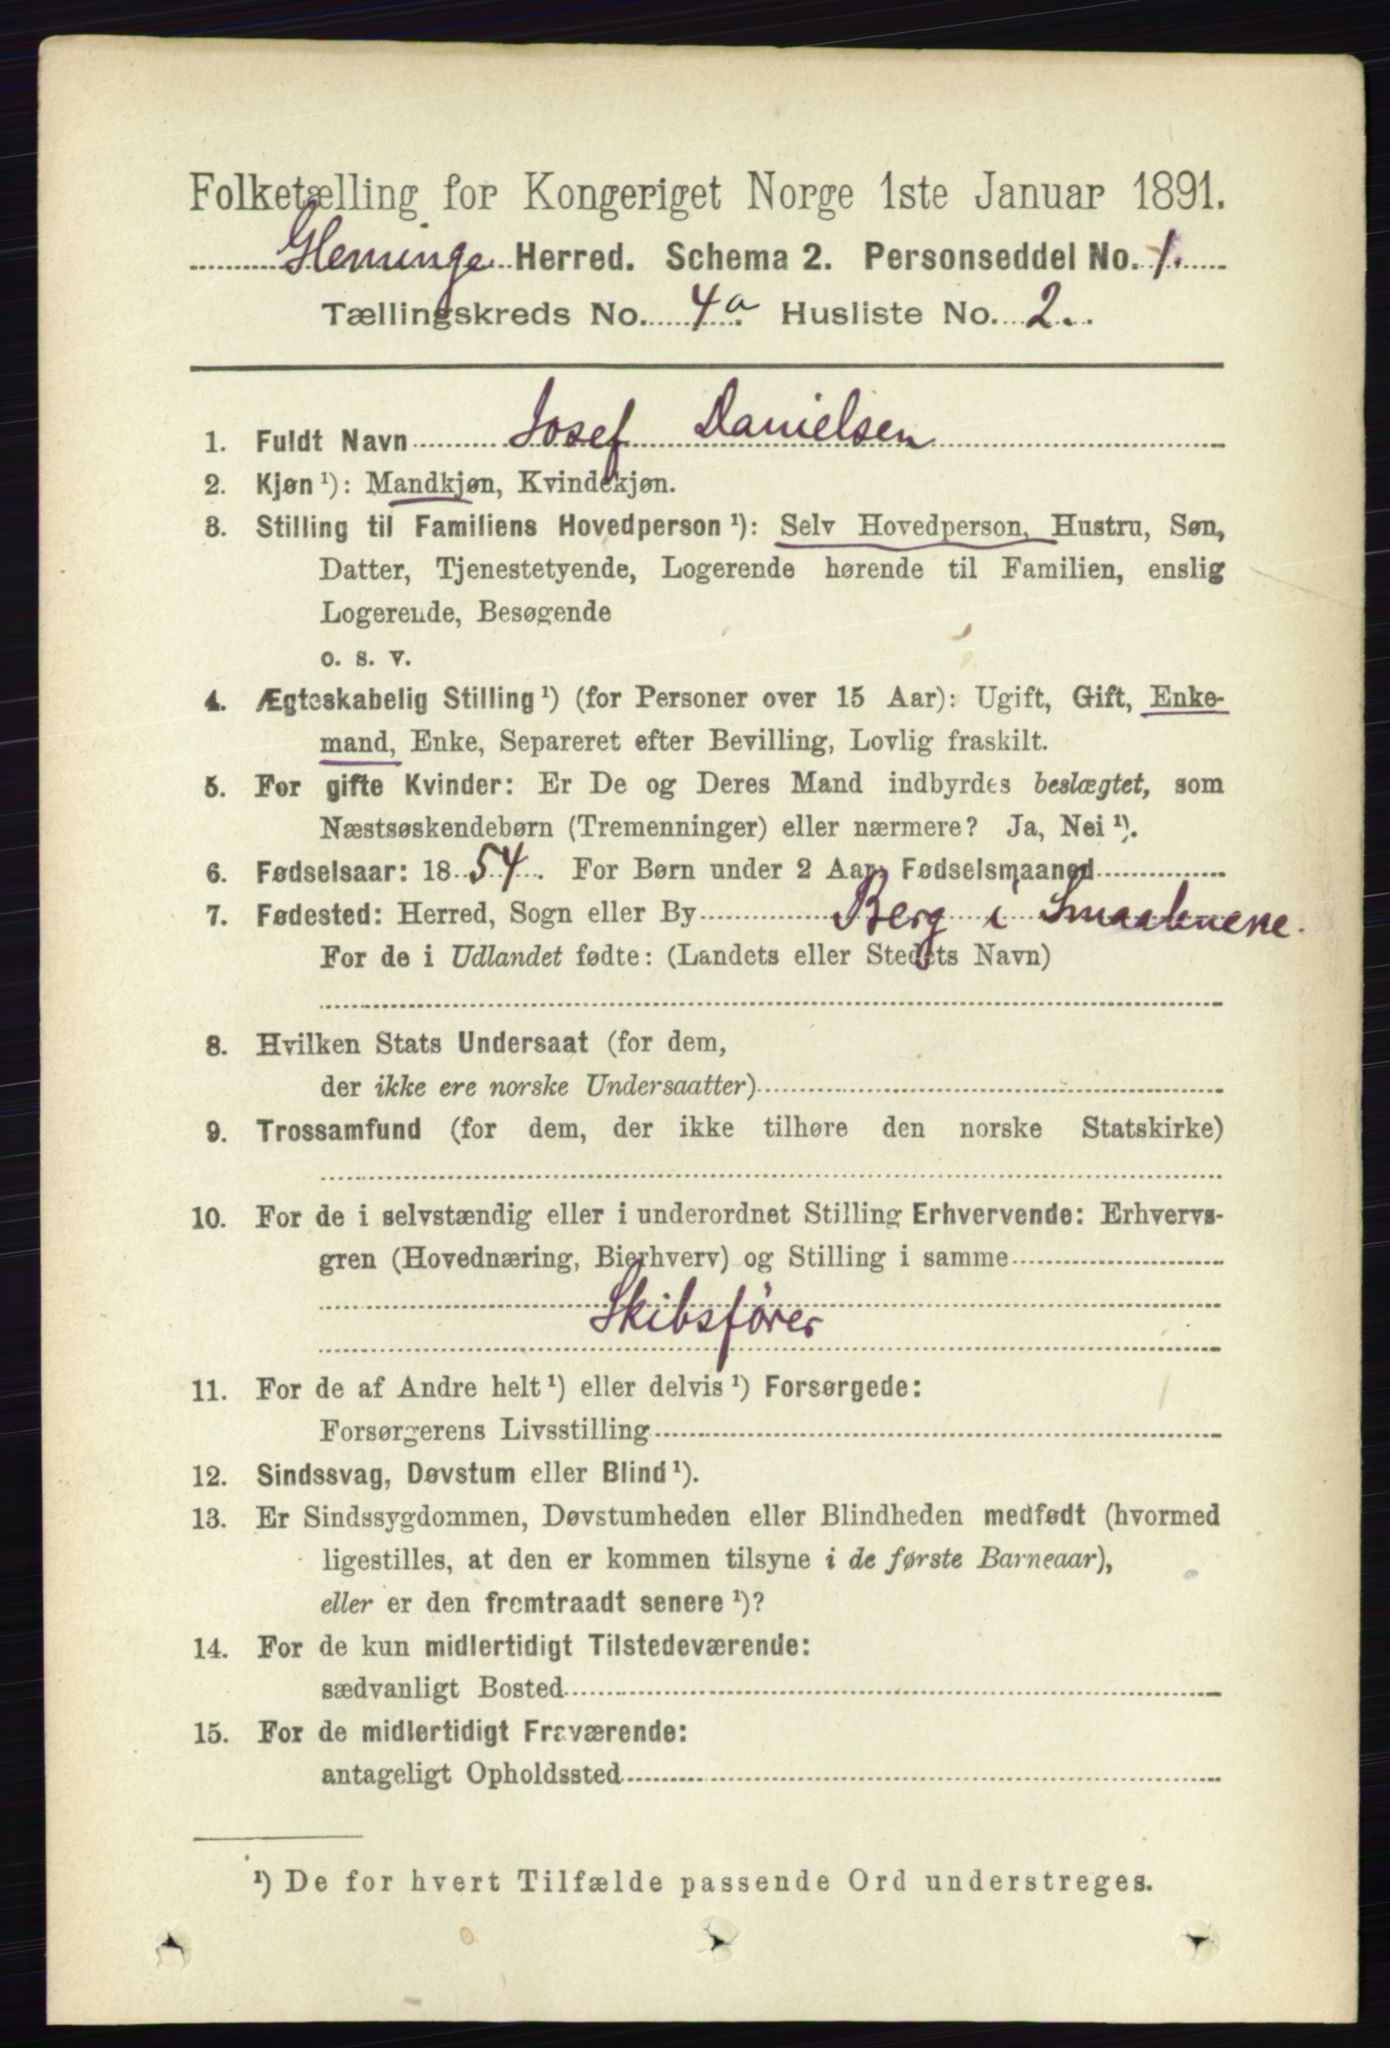 Folketælling for Kongeriget Norge 1ste Januar 1891.
Gleminge Herred. Schema 2. Personseddel No. 1.
Tællingskreds No. 4a Husliste No. 2.
1. Fuldt Navn Josef Danielsen
2. Kjøn ¹): Mandkjøn, Kvindekjøn.
3. Stilling til Familiens Hovedperson ¹): Selv Hovedperson, Hustru, Søn,
Datter, Tjenestetyende, Logerende hørende til Familien, enslig
Logerende, Besøgende
o. s. v.
4. Ægteskabelig Stilling ¹) (for Personer over 15 Aar): Ugift, Gift, Enke-
mand, Enke, Separeret efter Bevilling, Lovlig fraskilt.
5. For gifte Kvinder: Er De og Deres Mand indbyrdes beslægtet, som
Næstsøskendebørn (Tremenninger) eller nærmere? Ja, Nei ¹).
6. Fødselsaar: 1854. For Børn under 2 Aar, Fødselsmaaned
7. Fødested: Herred, Sogn eller By Berg i Smaalenene.
For de i Udlandet fødte: (Landets eller Stedets Navn)
8. Hvilken Stats Undersaat (for dem,
der ikke ere norske Undersaatter)
9. Trossamfund (for dem, der ikke tilhøre den norske Statskirke)
10. For de i selvstændig eller i underordnet Stilling Erhvervende: Erhvervs-
gren (Hovednæring, Bierhverv) og Stilling i samme
Skibsfører
11. For de af Andre helt ¹) eller delvis ¹) Forsørgede:
Forsørgerens Livsstilling
12. Sindssvag, Døvstum eller Blind ¹).
13. Er Sindssygdommen, Døvstumheden eller Blindheden medfødt (hvormed
ligestilles, at den er kommen tilsyne i de første Barneaar),
eller er den fremtraadt senere ¹)?
14. For de kun midlertidigt Tilstedeværende:
sædvanligt Bosted
15. For de midlertidigt Fraværende:
antageligt Opholdssted
¹) De for hvert Tilfælde passende Ord understreges.